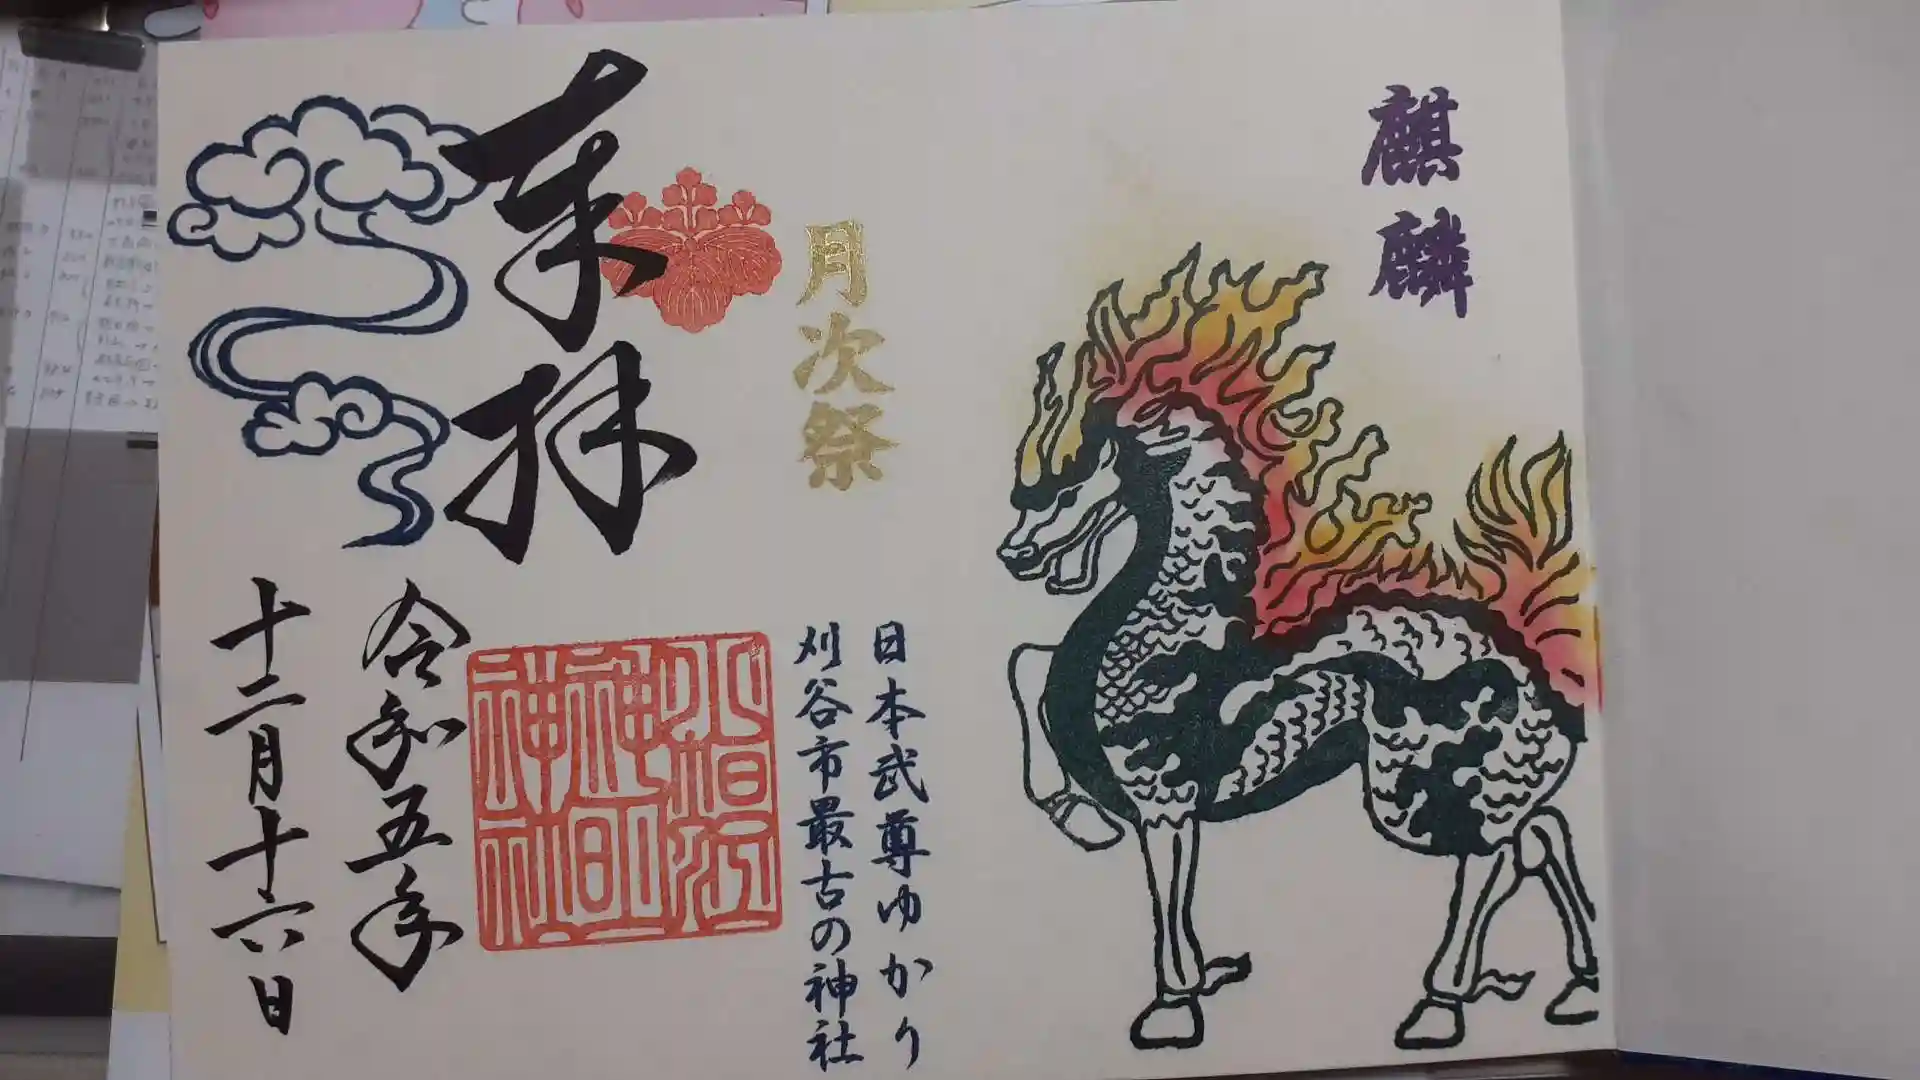 麒麟
月次祭
日本武尊ゆかり
刈谷市最古の神社
奉拝
令和五年
十二月十六日